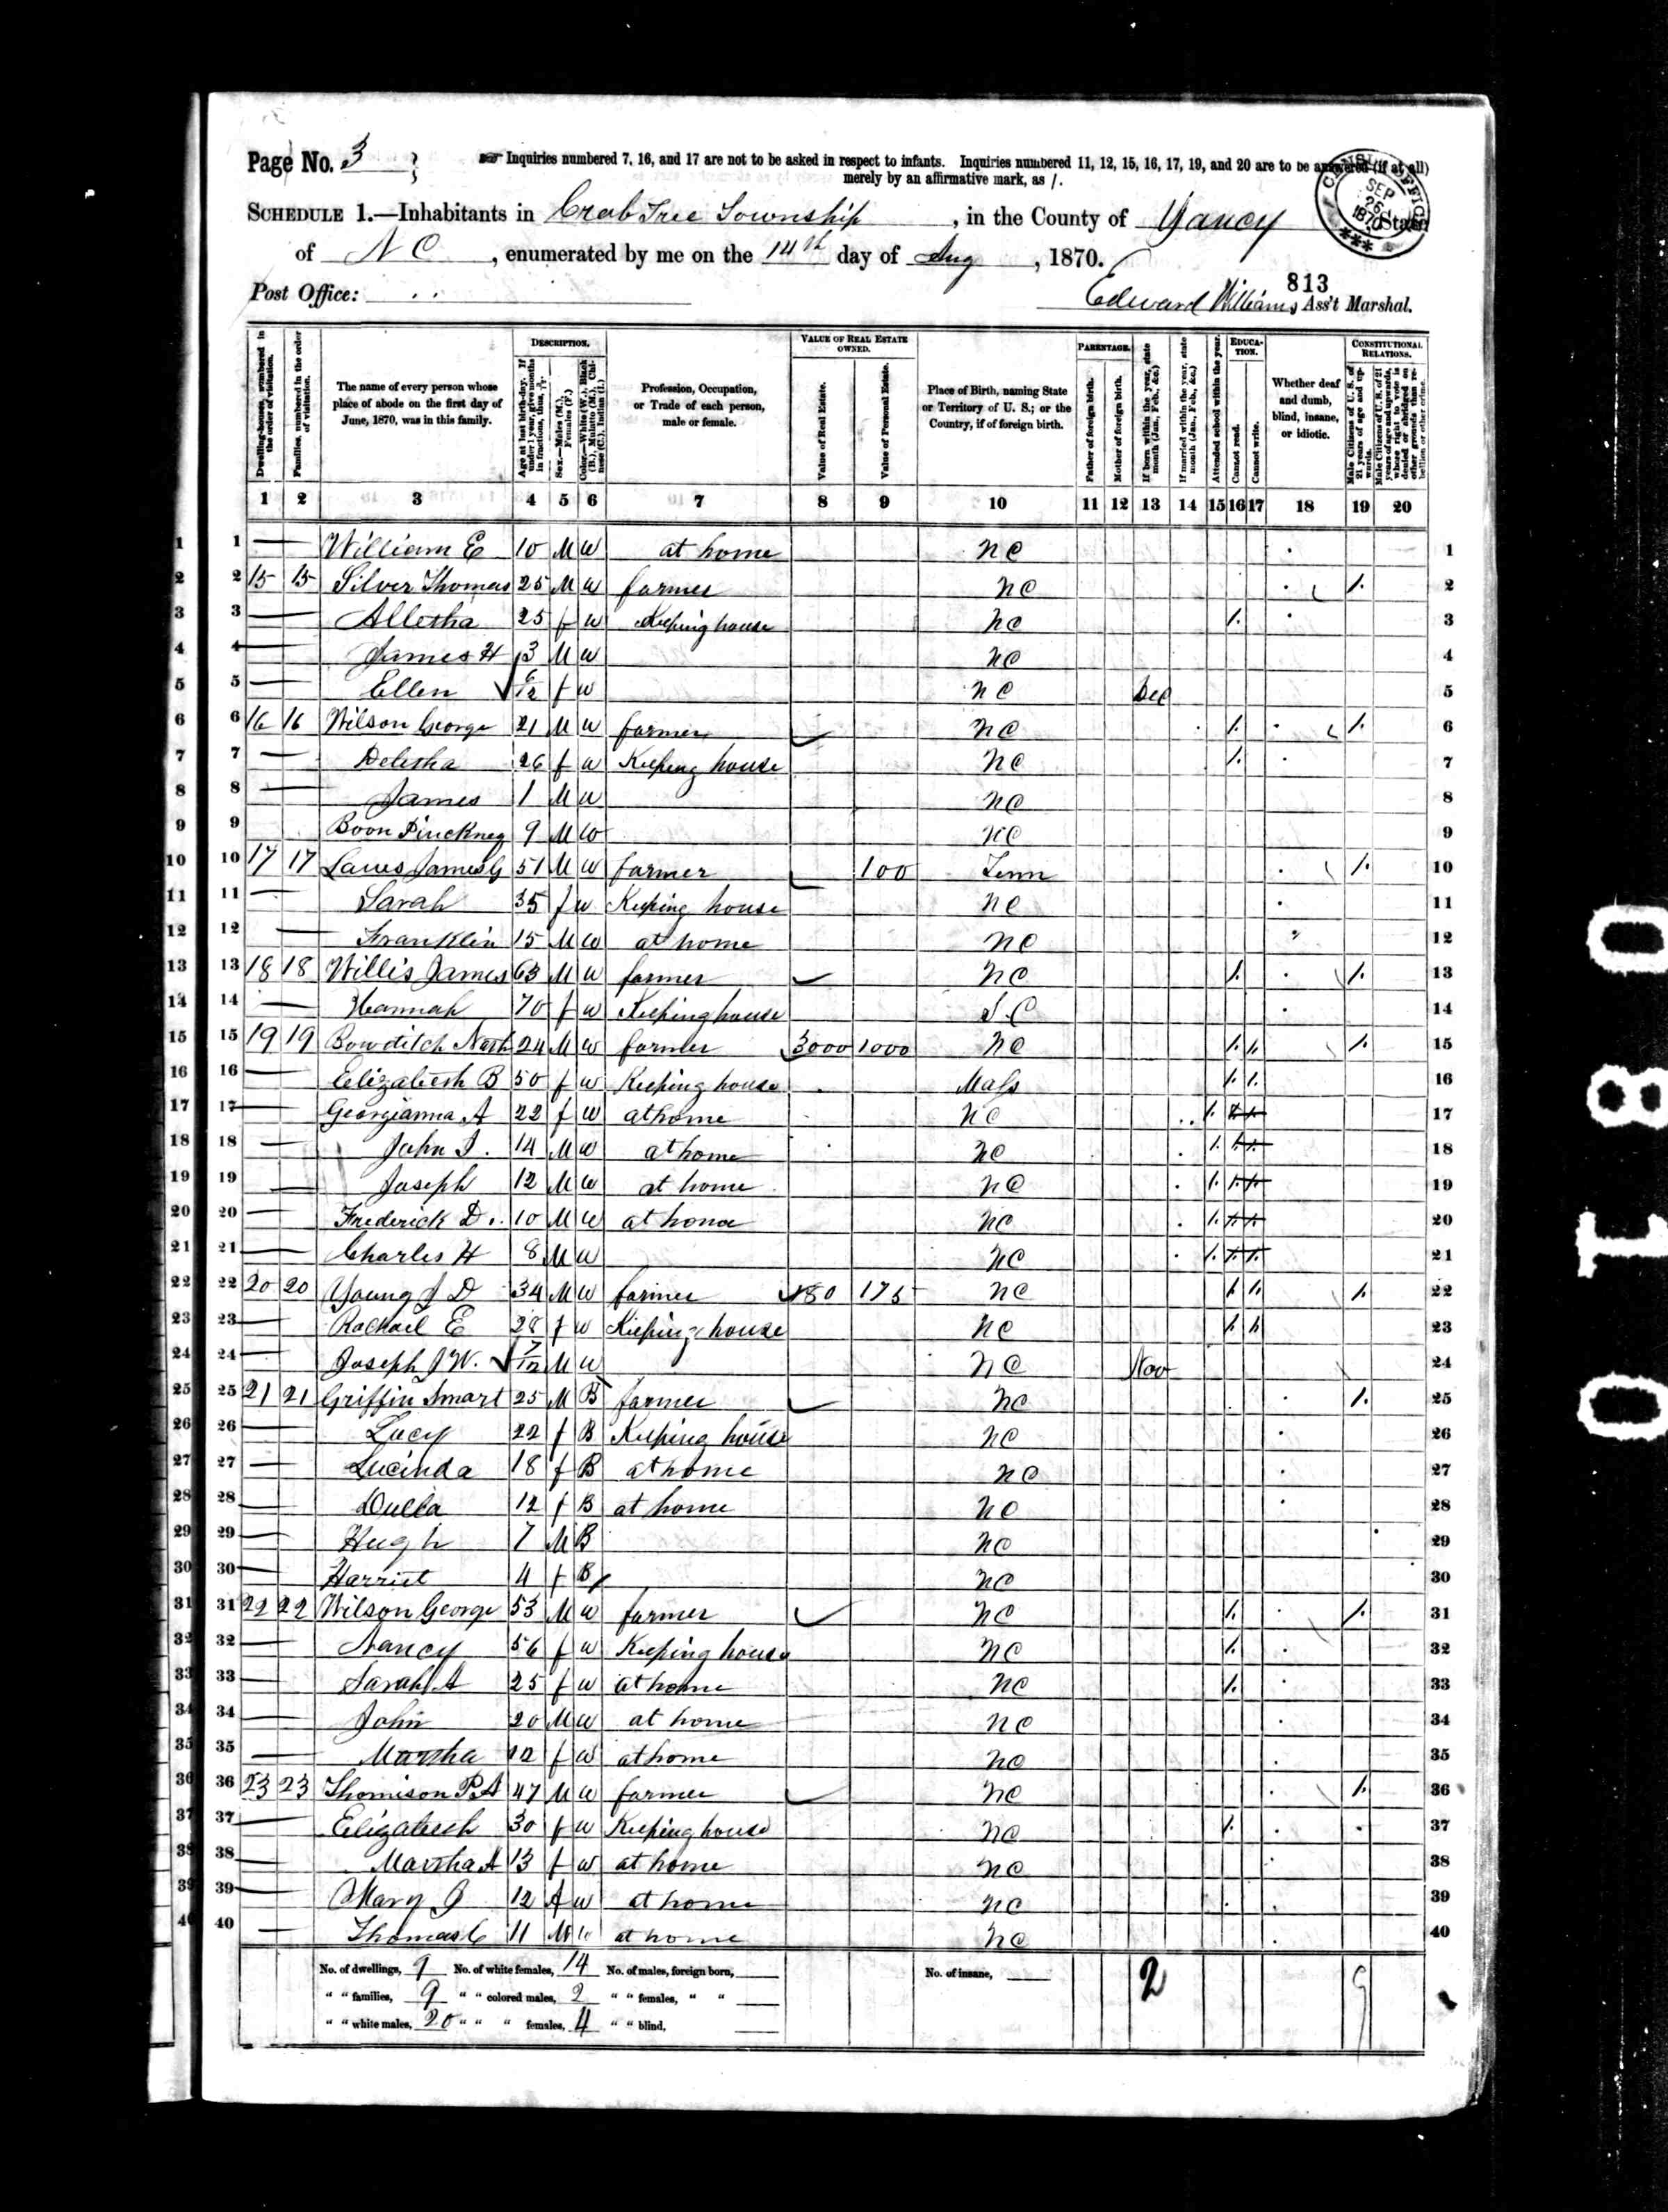 Page No. 3
Inquiries numbered 7, 16, and 17 are not to be asked in respect to infants. Inquiries numbered 11, 12, 15, 16, 17, 19, and 20 are to be answered (if at all)
merely by an affirmative mark, as /.
CENSUS OFFICE SEP 26 1870
SCHEDULE 1.—Inhabitants in Crab Tree Township, in the County of Yancy, State
of N C, enumerated by me on the 14th day of Aug, 1870.
813
Post Office: Edward Williams, Ass't Marshal.
DESCRIPTION. VALUE OF REAL ESTATE OWNED. PARENTAGE. EDUCATION. CONSTITUTIONAL RELATIONS.
Dwelling-houses, numbered in the order of visitation.
Families, numbered in the order of visitation.
The name of every person whose place of abode on the first day of June, 1870, was in this family.
Age at last birth-day. If under 1 year, give months in fractions, thus, 3/12.
Sex.—Males (M.), Females (F.)
Color.—White (W.), Black (B.), Mulatto (M.), Chinese (C.), Indian (I.)
Profession, Occupation, or Trade of each person, male or female.
Value of Real Estate.
Value of Personal Estate.
Place of Birth, naming State or Territory of U. S.; or the Country, if of foreign birth.
Father of foreign birth.
Mother of foreign birth.
If born within the year, state month (Jan., Feb., &c.)
If married within the year, state month (Jan., Feb., &c.)
Attended school within the year.
Cannot read.
Cannot write.
Whether deaf and dumb, blind, insane, or idiotic.
Male Citizens of U. S. of 21 years of age and upwards.
Male Citizens of U. S. of 21 years of age and upwards, whose right to vote is denied or abridged on other grounds than rebellion or other crime.
1 2 3 4 5 6 7 8 9 10 11 12 13 14 15 16 17 18 19 20
1 1 William E 10 M W at home N C 1
2 2 15 15 Silver Thomas 25 M W farmer N C / 2
3 3 Alletha 25 f W Keeping house N C / 3
4 4 James H 3 M W N C 4
5 5 Ellen 6/12 f W N C Dec 5
6 6 16 16 Wilson George 21 M W farmer N C / / 6
7 7 Deletha 26 f W Keeping house N C / 7
8 8 James 1 M W N C 8
9 9 Boon Pinckney 9 M W N C 9
10 10 17 17 James G 51 M W farmer 100 Tenn / 10
11 11 Sarah 35 f W Keeping house N C 11
12 12 Franklin 15 M W at home N C 12
13 13 18 18 Willis James 63 M W farmer N C / / 13
14 14 Hannah 70 f W Keeping house S. C 14
15 15 19 19 Bowditch Nath 24 M W farmer 3000 1000 N C / / / 15
16 16 Elizabeth B 50 f W Keeping house Mass / / 16
17 17 Georgianna A 22 f W at home N C / 17
18 18 John I. 14 M W at home N C / 18
19 19 Joseph 12 M W at home N C / 19
20 20 Frederick D. 10 M W at home N C / 20
21 21 Charles H 8 M W N C / 21
22 22 20 20 Young J D 34 M W farmer 180 175 N C / / / 22
23 23 Rachael E 28 f W Keeping house N C / / 23
24 24 Joseph J W. 7/12 M W N C Nov 24
25 25 21 21 Griffin Smart 25 M B farmer N C / 25
26 26 Lucy 22 f B Keeping house N C 26
27 27 Lucinda 18 f B at home N C 27
28 28 12 f B at home N C 28
29 29 Hugh 7 M B N C 29
30 30 Harriet 4 f B N C 30
31 31 22 22 Wilson George 53 M W farmer N C / / 31
32 32 Nancy 56 f W Keeping house N C / 32
33 33 Sarah A 25 f W at home N C / 33
34 34 John 20 M W at home N C 34
35 35 Martha 12 f W at home N C 35
36 36 23 23 Thomison P A 47 M W farmer N C / 36
37 37 Elizabeth 30 f W Keeping house N C / 37
38 38 Martha A 13 f W at home N C 38
39 39 Mary J 12 f W at home N C 39
40 40 Thomas C 11 M W at home N C 40
No. of dwellings, 9 No. of white females, 14 No. of males, foreign born, No. of insane, 2 9
" " families, 9 " " colored males, 2 " " females, " "
" " white males, 20 " " " females, 4 " " blind,
01180